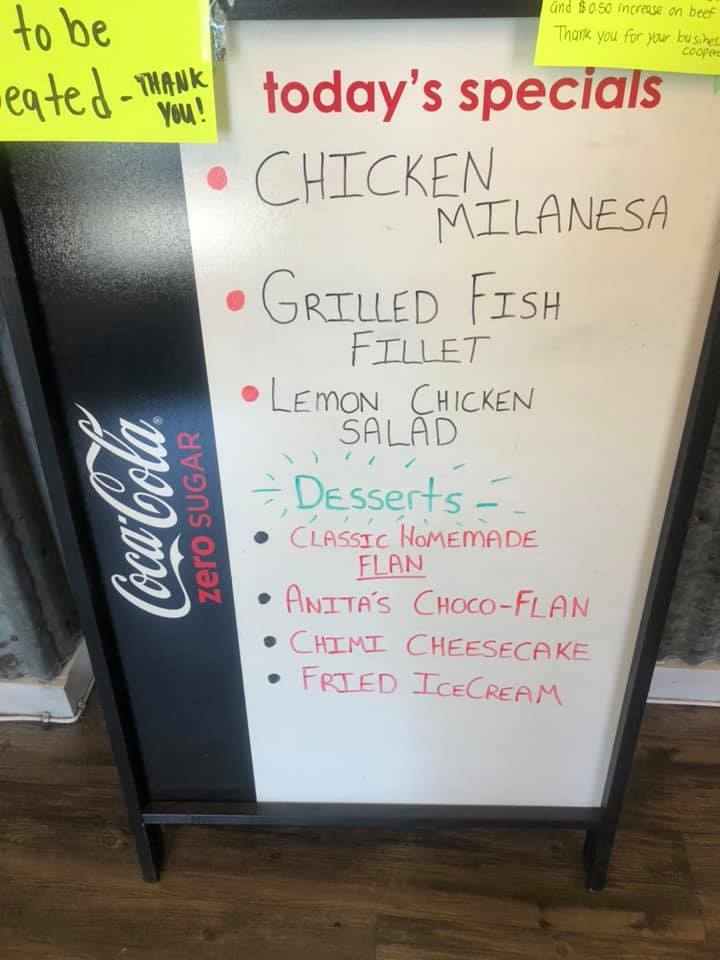 to be
eated - THANK
YOU!
and $0.50 increase on beef
Thank you for your
today's specials
• CHICKEN
MILANESA
• GRILLED FISH
FILLET
• LEMON CHICKEN
SALAD
Desserts
• CLASSIC HOMEMADE
FLAN
• ANITA'S CHOCO-FLAN
• CHIMI CHEESECAKE
• FRIED ICECREAM
Coca-Cola®
zero SUGAR